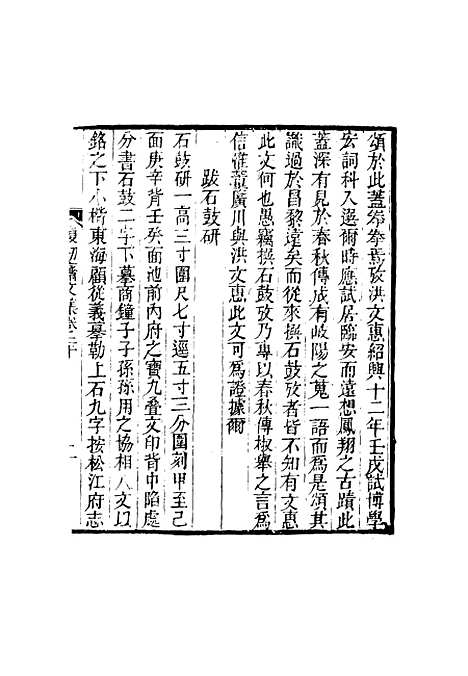 頌於此蓋拳拳焉攷洪文惠紹興十二年壬戌試博學
宏詞科入選爾時應試居臨安而遠想鳳翔之古蹟此
蓋深有見於春秋傳成有岐陽之蒐一語而爲是頌其
識過於昌黎遠矣而從來撰石鼓攷者皆不知有文惠
此文何也愚竊撰石鼓攷乃專以春秋傳椒舉之言爲
信淮董廣川與洪文惠此文可爲證據爾
跋石鼓研
石鼓研一高三寸圍尺七寸逕五寸三分圍刻甲至己
面庚辛背壬癸面池前內府之寶九叠文印背中陷處
分書石鼓二字下摹商鐘子子孫孫用之協相八文以
銘之下小楷東海顧從義摹勒上石九字按松江府志
復初齋文集卷二十